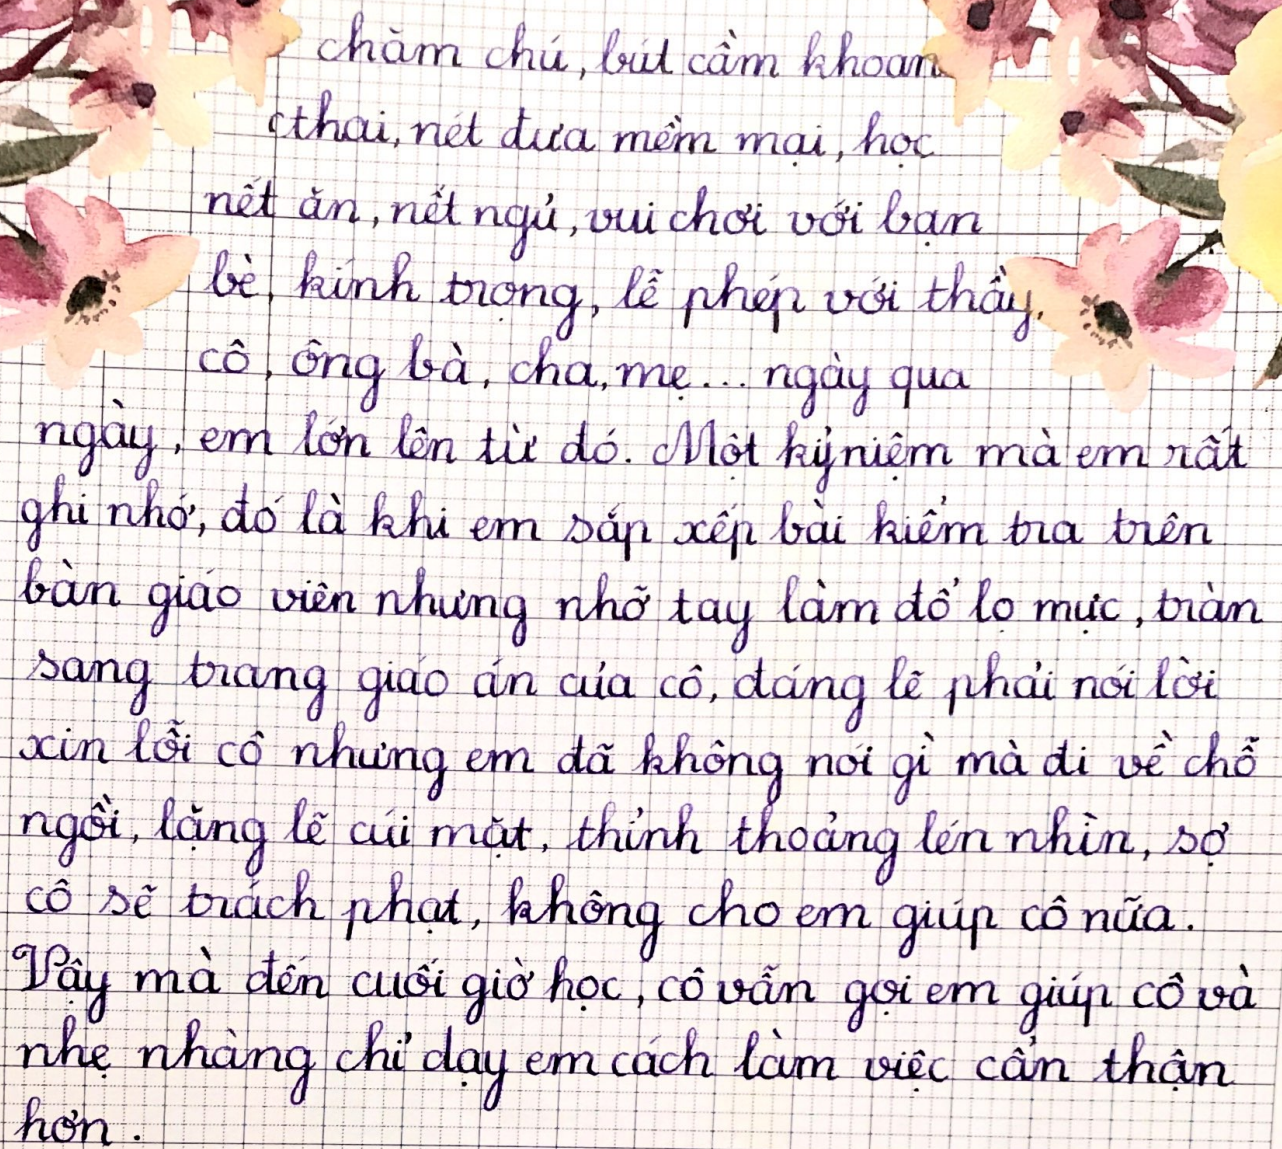 chăm chú, bút cầm khoan
thai, nét đưa mềm mại, học
nết ăn, nết ngủ, vui chơi với bạn
bè, kính trọng, lễ phép với thầy,
cô, ông bà, cha, mẹ... ngày qua
ngày, em lớn lên từ đó. Một kỷ niệm mà em rất
ghi nhớ, đó là khi em sắp xếp bài kiểm tra trên
bàn giáo viên nhưng nhỡ tay làm đổ lọ mực, tràn
sang trang giáo án của cô, đáng lẽ phải nói lời
xin lỗi cô nhưng em đã không nói gì mà đi về chỗ
ngồi, lặng lẽ cúi mặt, thỉnh thoảng lén nhìn, sợ
cô sẽ trách phạt, không cho em giúp cô nữa.
Vậy mà đến cuối giờ học, cô vẫn gọi em giúp cô và
nhẹ nhàng chỉ dạy em cách làm việc cẩn thận
hơn.